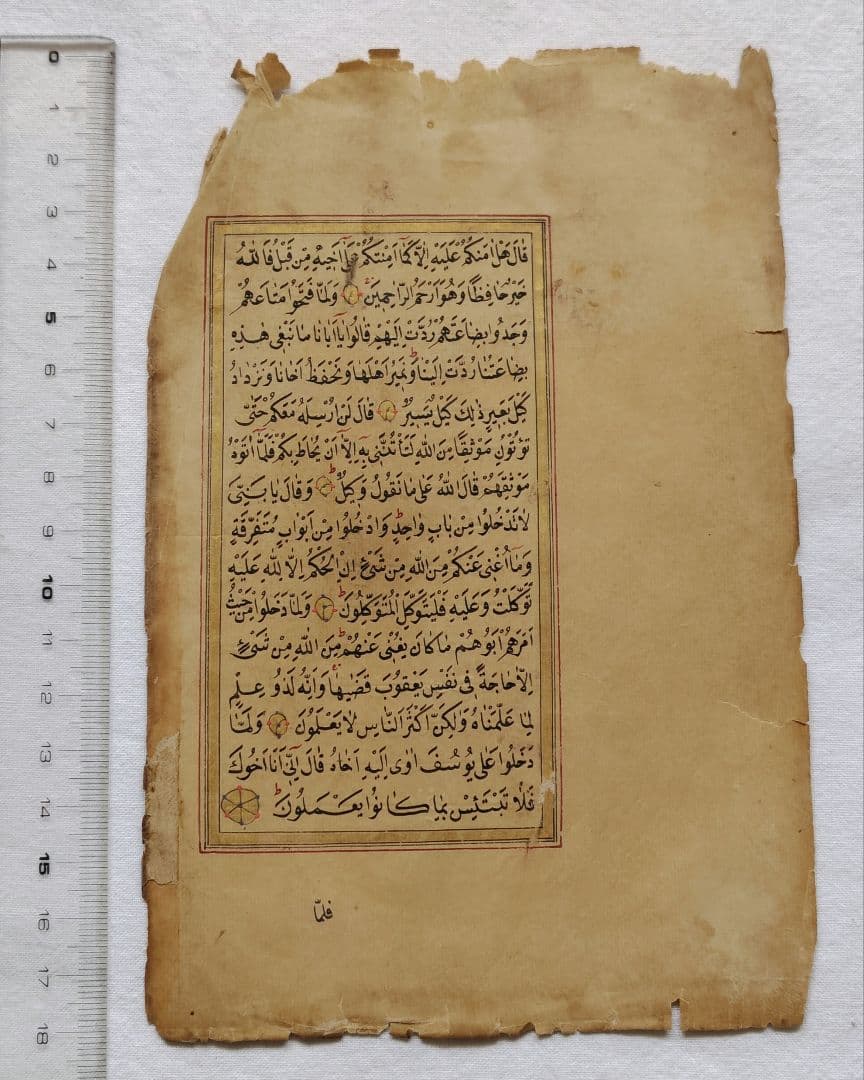 قَالَ هَلْ اٰمَنُكُمْ عَلَيْهِ اِلَّا كَمَٓا اَمِنْتُكُمْ عَلٰٓى اَخِيهِ مِنْ قَبْلُ فَاللّٰهُ
خَيْرٌ حَافِظًا وَهُوَ اَرْحَمُ الرَّاحِمِينَ وَلَمَّا فَتَحُوا مَتَاعَهُمْ
وَجَدُوا بِضَاعَتَهُمْ رُدَّتْ اِلَيْهِمْ قَالُوا يَٓا اَبَانَا مَا نَبْغِى هٰذِهِ
بِضَاعَتُنَا رُدَّتْ اِلَيْنَا وَنَمِيرُ اَهْلَنَا وَنَحْفَظُ اَخَانَا وَنَزْدَادُ
كَيْلَ بَعِيرٍ ذٰلِكَ كَيْلٌ يَسِيرٌ قَالَ لَنْ اُرْسِلَهُ مَعَكُمْ حَتّٰى
تُؤْتُونِ مَوْثِقًا مِنَ اللّٰهِ لَتَأْتُنَّنِى بِهِٓ اِلَّٓا اَنْ يُحَاطَ بِكُمْ فَلَمَّٓا اٰتَوْهُ
مَوْثِقَهُمْ قَالَ اللّٰهُ عَلٰى مَا نَقُولُ وَكِيلٌ وَقَالَ يَا بَنِىَّ
لَا تَدْخُلُوا مِنْ بَابٍ وَاحِدٍ وَادْخُلُوا مِنْ اَبْوَابٍ مُتَفَرِّقَةٍ
وَمَٓا اُغْنِى عَنْكُمْ مِنَ اللّٰهِ مِنْ شَىْءٍ اِنِ الْحُكْمُ اِلَّا لِلّٰهِ عَلَيْهِ
تَوَكَّلْتُ وَعَلَيْهِ فَلْيَتَوَكَّلِ الْمُتَوَكِّلُونَ وَلَمَّا دَخَلُوا مِنْ حَيْثُ
اَمَرَهُمْ اَبُوهُمْ مَا كَانَ يُغْنِى عَنْهُمْ مِنَ اللّٰهِ مِنْ شَىْءٍ
اِلَّا حَاجَةً فِى نَفْسِ يَعْقُوبَ قَضٰيهَا وَاِنَّهُ لَذُو عِلْمٍ
لِمَا عَلَّمْنَاهُ وَلٰكِنَّ اَكْثَرَ النَّاسِ لَا يَعْلَمُونَ وَلَمَّا
دَخَلُوا عَلٰى يُوسُفَ اٰوٰى اِلَيْهِ اَخَاهُ قَالَ اِنِّٓى اَنَا اَخُوكَ
فَلَا تَبْتَئِسْ بِمَا كَانُوا يَعْمَلُونَ
فلمّا
0
1
2
3
4
5
6
7
8
9
10
11
12
13
14
15
16
17
18